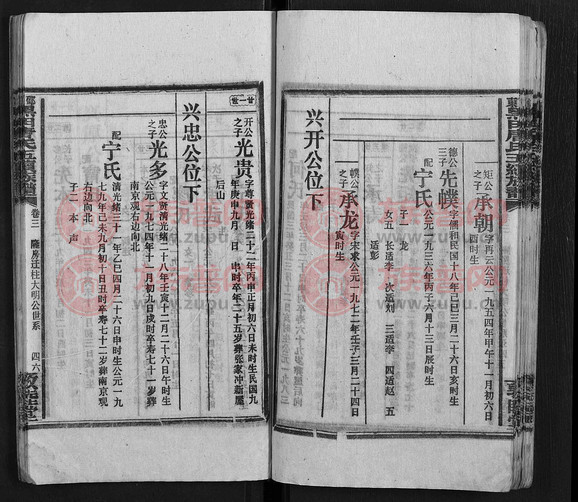 矩公之子 承朝 字再云公元一九五四年甲午十一月初六日
寅时生
德公之子 先幞 字儒和民国十八年己巳三月二十六日亥时生
配 宁氏 公元一九三六年丙子六月十三日辰时生
子一 龙
女五 长适李 次适刘 三适李 四适赵 五
适彭
幞公之子 承龙 字宋求公元一九七二年壬子三月二十四日
寅时生
兴开公位下
廿一世
开公之子 光贵 字尊贤光绪三十二年丙申正月初六日未时生民国九
年庚申九月 日 申时卒年二十五岁葬张家冲新屋
后山
兴忠公位下
忠公之子 光多 字文贤清光绪二十八年壬寅十二月二十六日午时生
公元一九七四年十一月初九日戌时卒寿七十一岁葬
南京观右边向北
配 宁氏 清光绪三十一年乙巳四月二十六日申时生公元一九
七九年己未九月初十日丑时卒寿七十二岁葬南京观
右边向北
子二 本 声
卷三
隆房迁柱大明公世系
四六
族谱网
www.zupu.cn